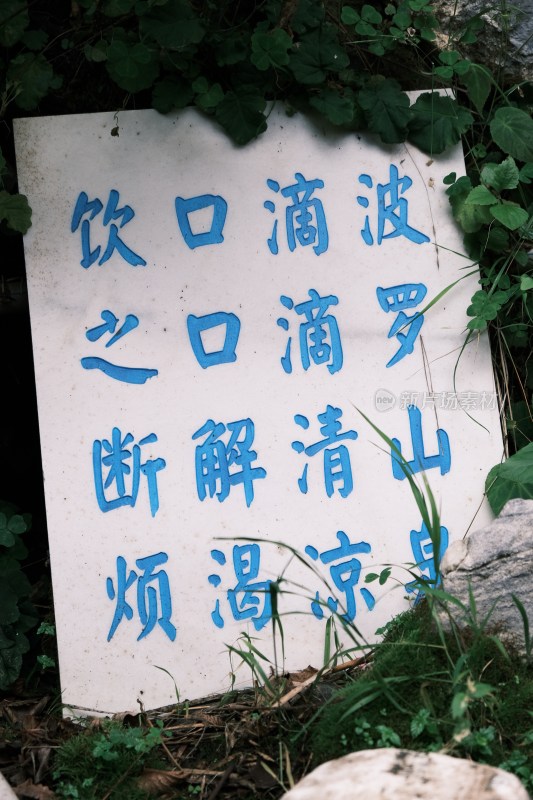 波罗山泉
滴滴清凉
口口解渴
饮之断烦
new 新片场素材